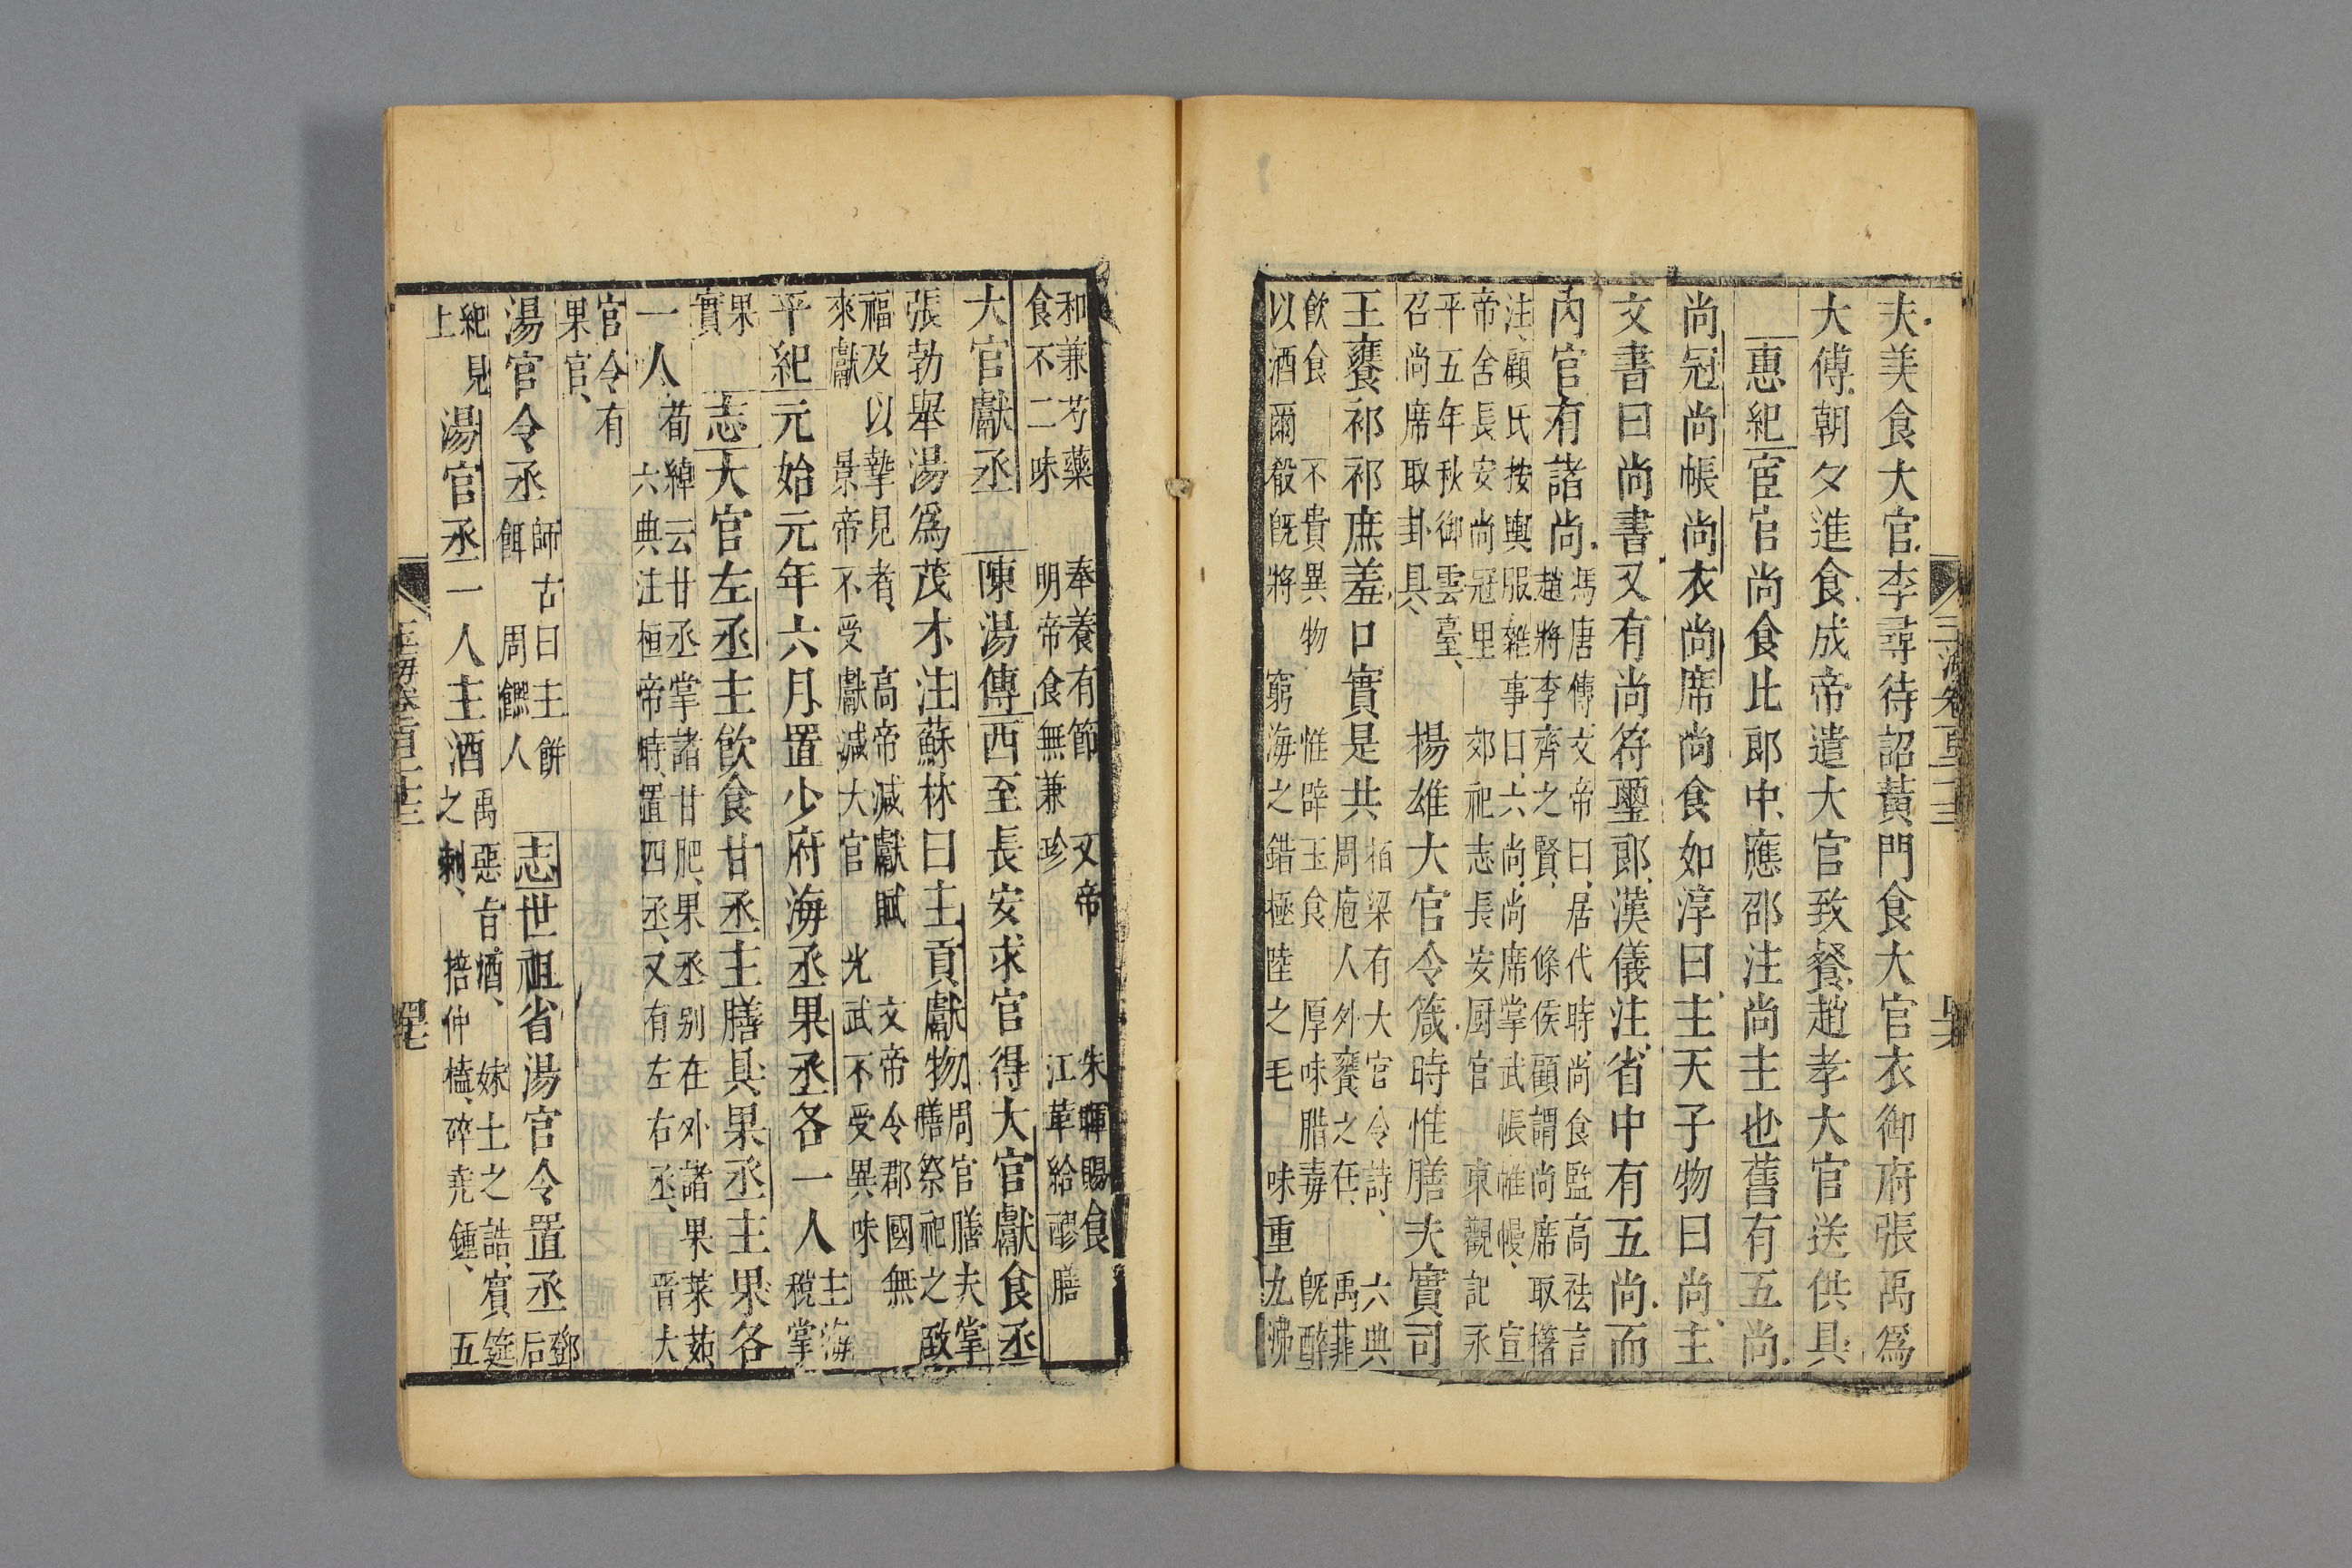 玉海卷百二十三
夫美食大官李尋待詔黃門食大官衣御府張禹爲
大傅朝夕進食成帝遣大官致餐趙孝大官送供具
惠紀宦官尚食比郎中應邵注尚主也舊有五尚
尚冠尚帳尚衣尚席尚食如淳曰主天子物曰尚主
文書曰尚書又有尚符璽郎漢儀注省中有五尚而
內官有諸尚
馮唐傳文帝曰居代時尚食監高祛言
趙將李齊之賢條侯顧謂尚席取櫡
注顧氏按輿服雜事曰六尚尚席掌武帳帷幔宣
帝舍長安尚冠里郊祀志長安厨官東觀記永
平五年秋御雲臺
召尚席取卦具
揚雄大官令箴時惟膳夫實司
王饔祁祁庶羞口實是共
柏梁有大官令詩六典
周庖人外饔之在禹菲
飲食不貴異物惟辟玉食厚味腊毒既醉
以酒爾殽既將窮海之錯極陸之毛味重九沸
和兼芍藥奉養有節文帝朱暉賜食
食不二味明帝食無兼珍江革給醪膳
大官獻丞陳湯傳西至長安求官得大官獻食丞
張勃舉湯爲茂才注蘇林曰主貢獻物
周官膳夫掌
膳祭祀之致
福及以摯見者高帝減獻賦文帝令郡國無
來獻景帝不受獻減大官光武不受異味
平紀元始元年六月置少府海丞果丞各一人
主海
稅掌
果
實
志大官左丞主飲食甘丞主膳具果丞主果各
一人
荀綽云甘丞掌諸甘肥果丞别在外諸果菜茹
六典注桓帝時置四丞又有左右丞晋大
官令有
果官
湯官令丞
師古曰主餅
餌周人
志世祖省湯官令置丞
鄧
后
紀見
上
湯官丞一人主酒
禹惡旨酒妹土之誥賓筵
之刺掊仲榼碎堯鍾五
玉海卷百二十三